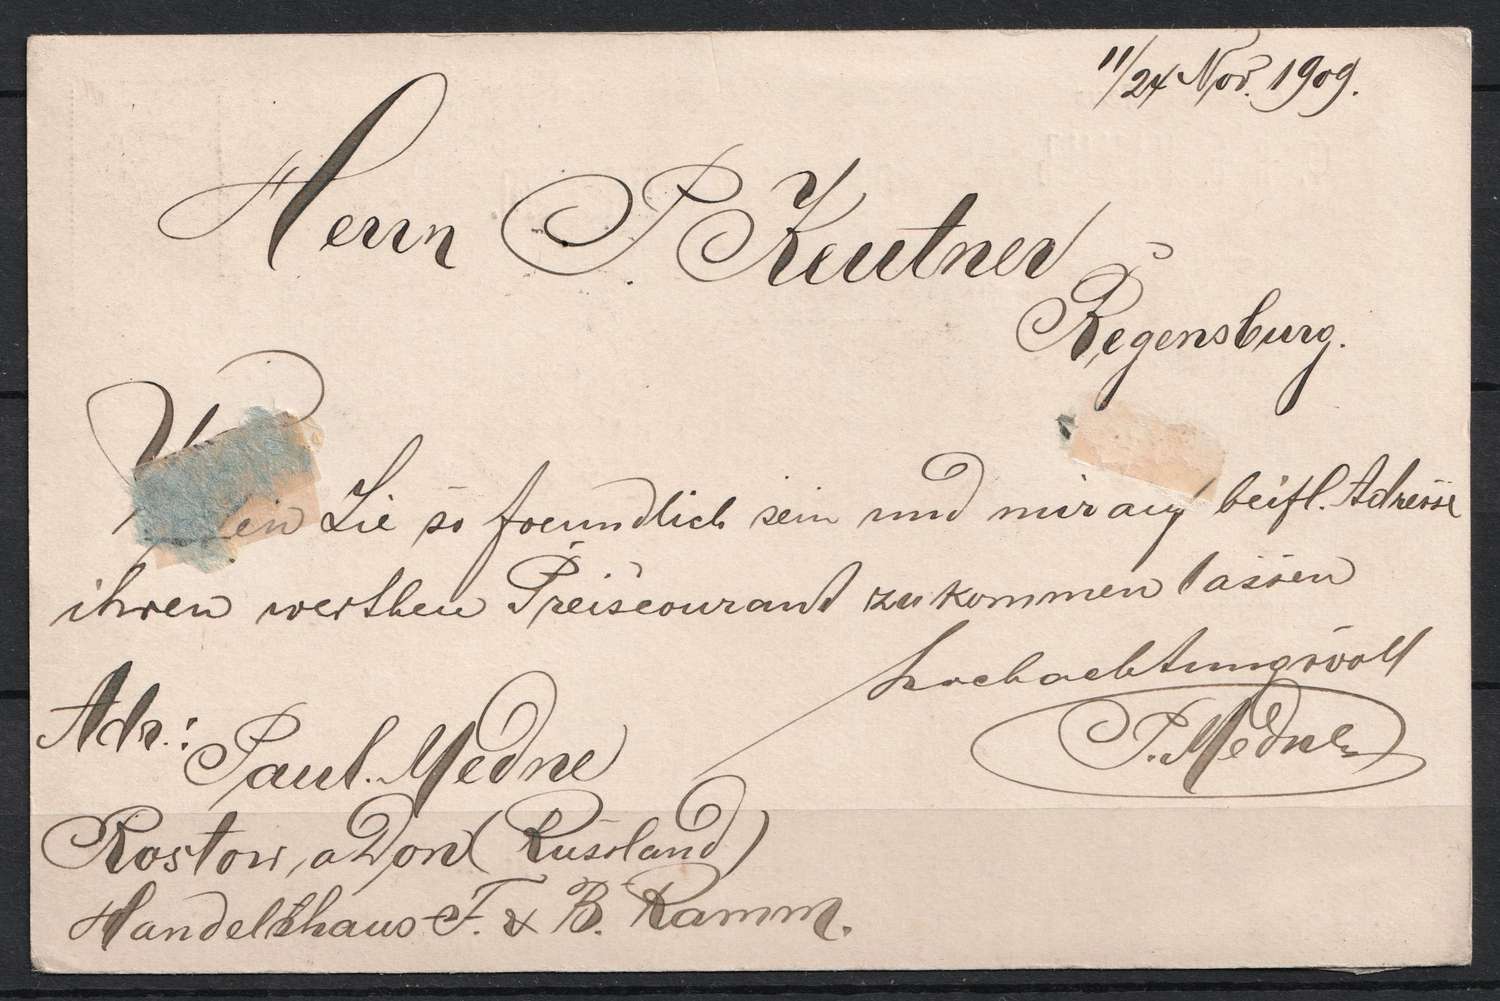 11/24 Nov. 1909.
Herrn P. Keutner
Regensburg.
Sie so freundlich sein und mir auf beifl. Adresse
ihren werthen Preiscourant zukommen lassen
hochachtungsvoll
Adr.: P. Medne
Paul. Medne
Rostow, a Don (Russland)
Handelshaus F. & B. Ramm.